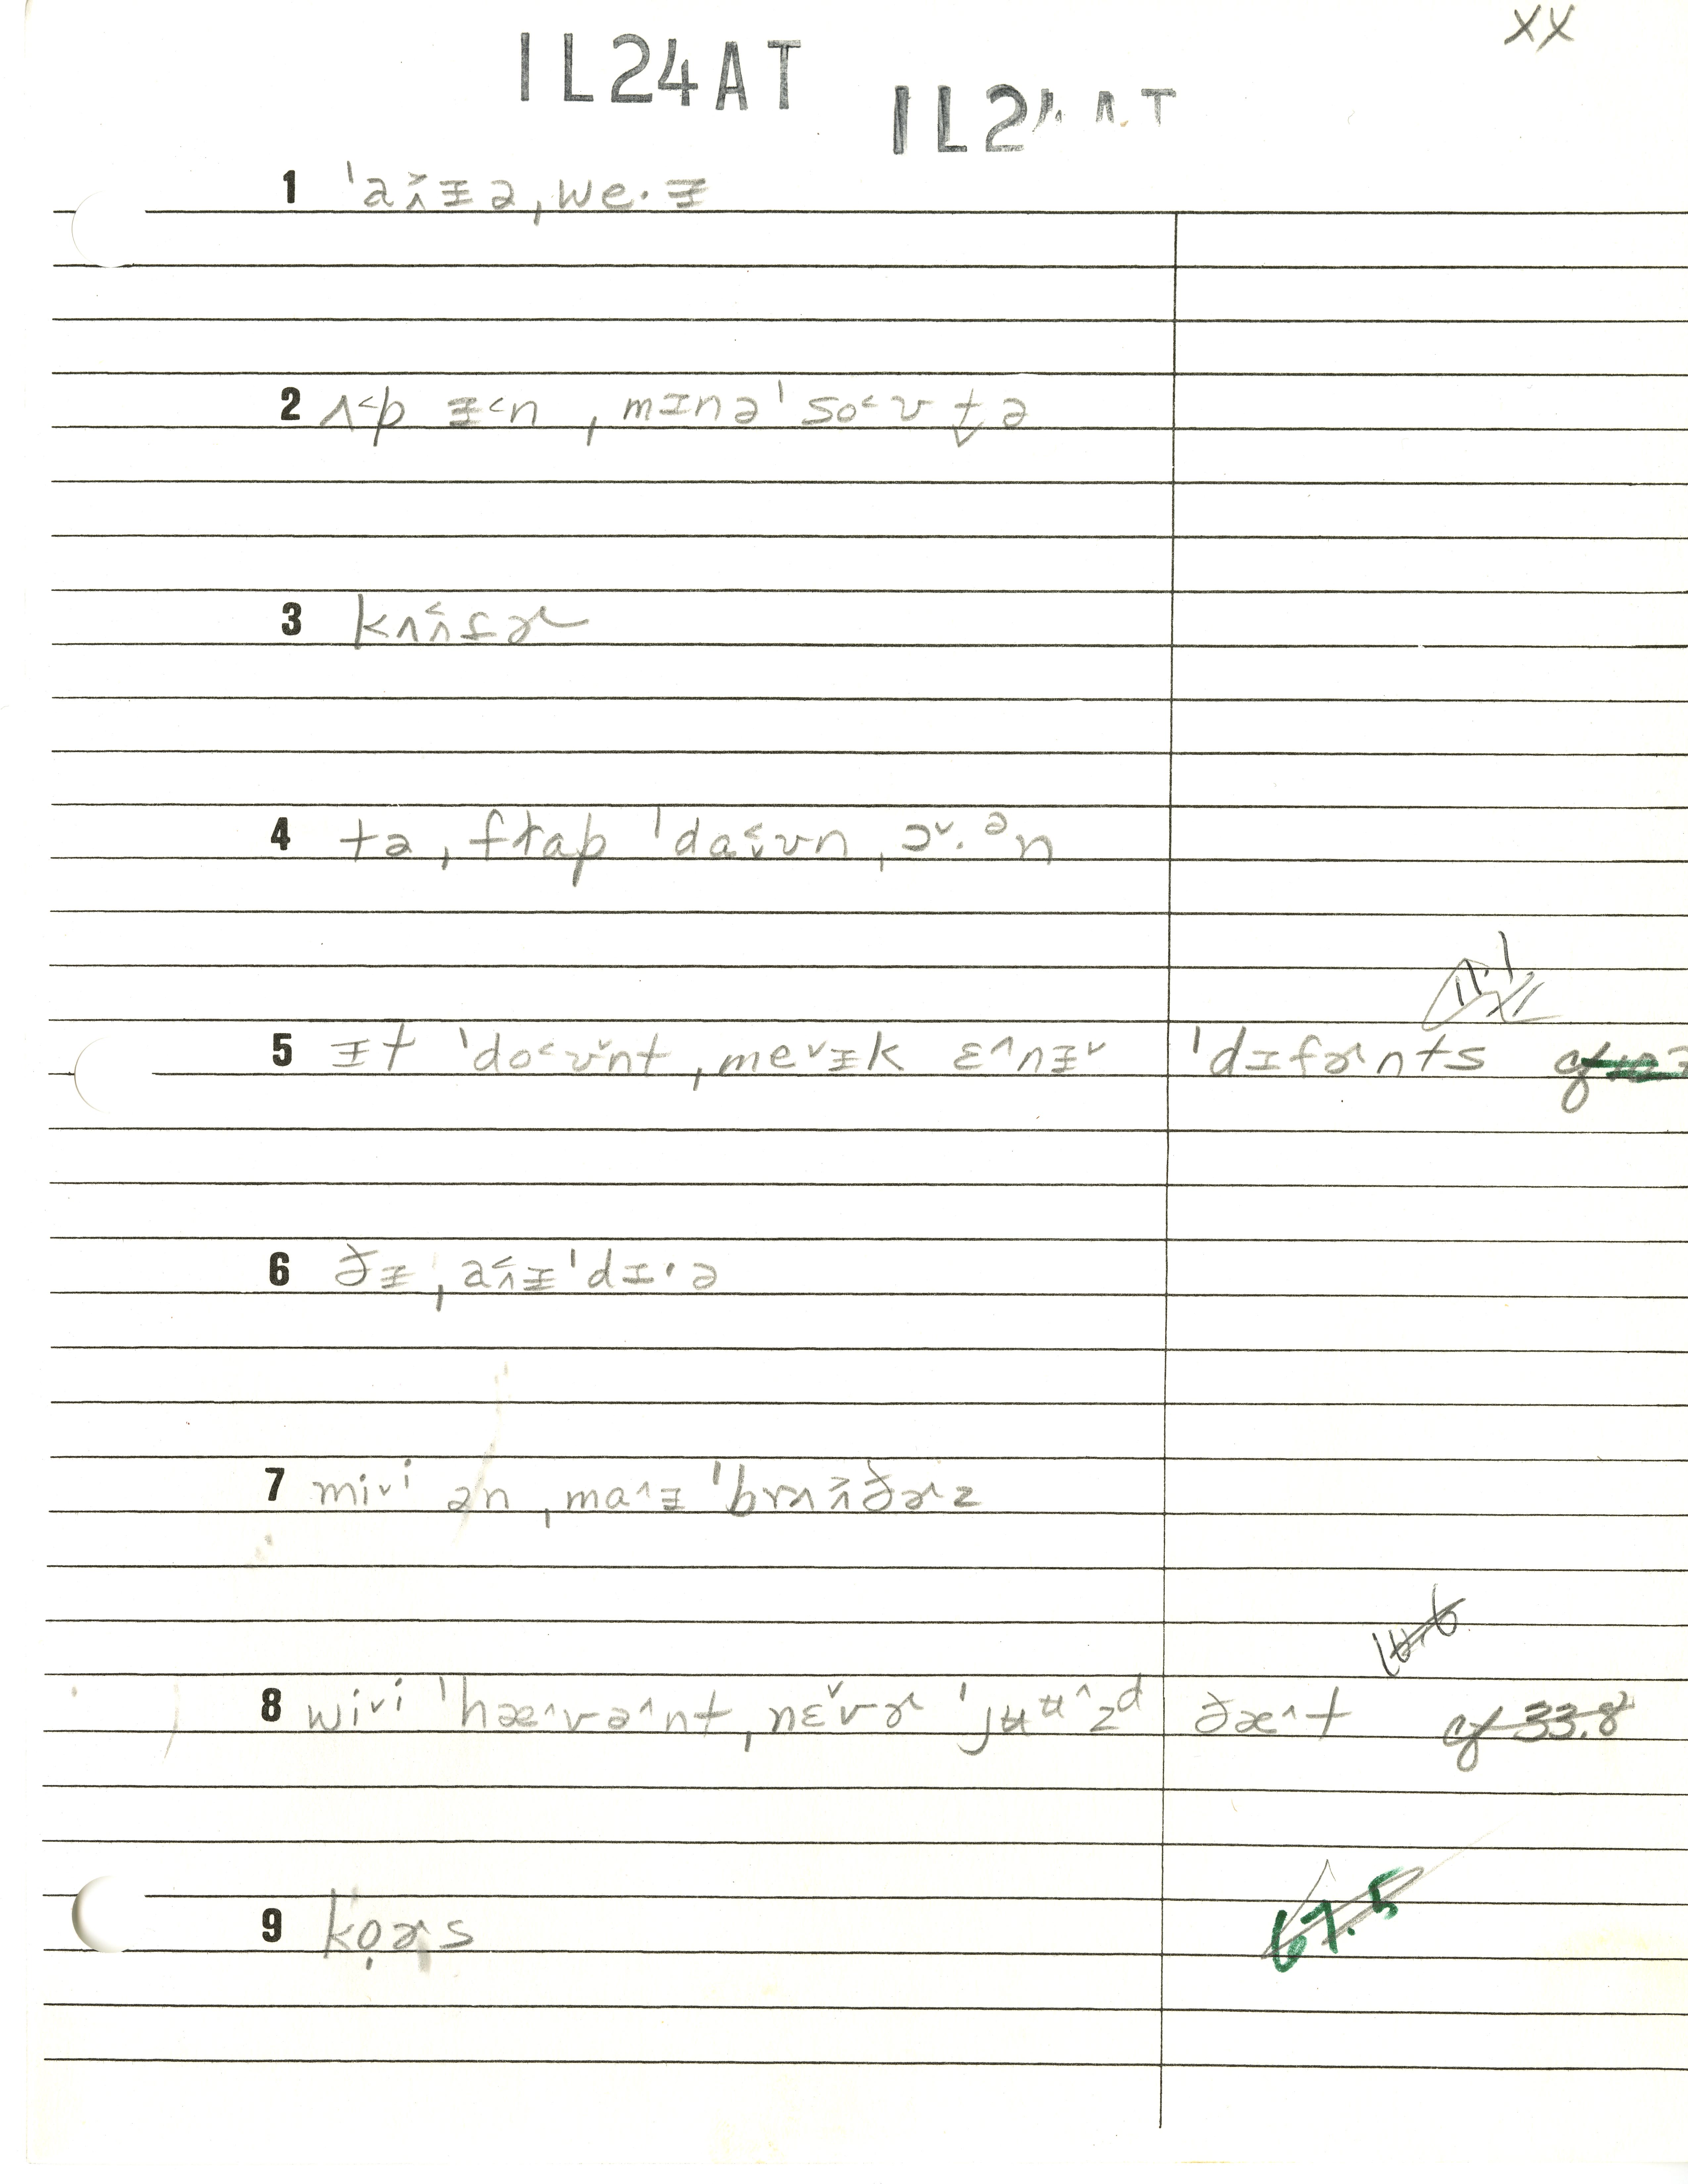 XX
IL24AT
IL24AT
1 ˈaʌ̌ɪə ˌwe·ɪ
2 ʌ˂p ɪ˂n ˌmɪnəˈso˂ʊt̬ə
3 kʌʌ̂fɚ
4 tə ˌʃtap ˈda˂ʊn ˌɔˇ·ᵊn
5 ɪt ˈdo˂ʊˇnt ˌmeˇɪk ɛ^nɪˇ ˈdɪfɚnts cf
6 ðɪ ˌa˂ɪˈdɪ·ə
7 miˇi ən ˌma^ɪ ˈbrʌʌ̌ðɚz
8 wiˇi ˈhæ^və^nt ˌnɛˇvɚ ˈjʉʉ^zᵈ ðæ^t cf 33.8
9 ko̩ɚs 67.5